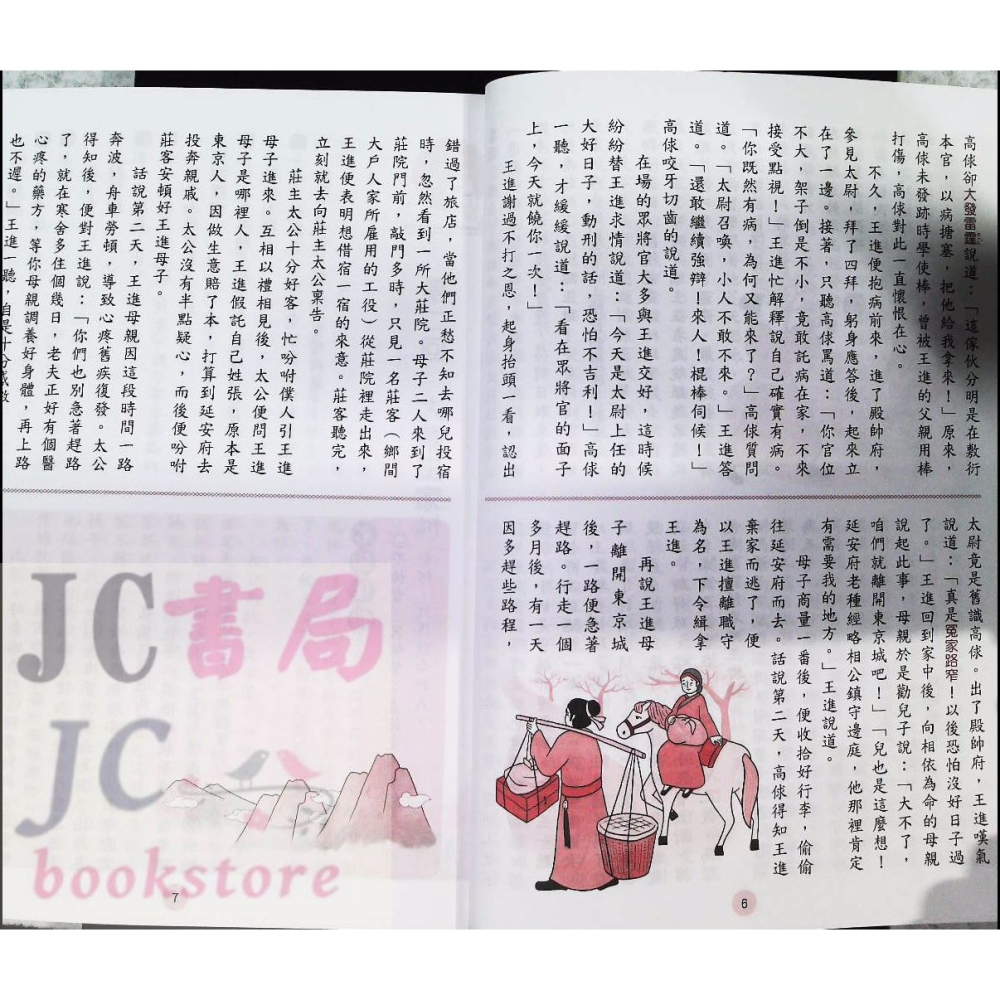 高俅卻大發雷霆說道：「這傢伙分明是在敷衍
本官，以病搪塞，把他給我拿來！」原來，
高俅未發跡時學使棒，曾被王進的父親用棒
打傷，高俅對此一直懷恨在心。
不久，王進便抱病前來，進了殿帥府，
參見太尉，拜了四拜，躬身應答後，起來立
在了一邊。接著，只聽高俅罵道：「你官位
不大，架子倒是不小，竟敢託病在家，不來
接受點視！」王進忙解釋說自己確實有病。
「你既然有病，為何又能來了？」高俅質問
道。「太尉召喚，小人不敢不來。」王進答
道。「還敢繼續強辯！來人！棍棒伺候！」
高俅咬牙切齒的說道。
在場的眾將官大多與王進交好，這時候
紛紛替王進求情說道：「今天是太尉上任的
大好日子，動刑的話，恐怕不吉利！」高俅
一聽，才緩緩說道：「看在眾將官的面子
上，今天就饒你一次！」
王進謝過不打之恩，起身抬頭一看，認出
太尉竟是舊識高俅。出了殿帥府，王進嘆氣
說道：「真是冤家路窄！以後恐怕沒好日子過
了。」王進回到家中後，向相依為命的母親
說起此事，母親於是勸兒子說：「大不了，
咱們就離開東京城吧！」「兒也是這麼想！
延安府老種經略相公鎮守邊庭，他那裡肯定
有需要我的地方。」王進說道。
母子商量一番後，便收拾好行李，偷偷
往延安府而去。話說第二天，高俅得知王進
棄家而逃了，便
以王進擅離職守
為名，下令緝拿
王進。
再說王進母
子離開東京城
後，一路便急著
趕路。行走一個
多月後，有一天
因多趕些路程，
6
錯過了旅店，當他們正愁不知去哪兒投宿
時，忽然看到一所大莊院。母子二人來到了
莊院門前，敲門多時，只見一名莊客（鄉間
大戶人家所雇用的工役）從莊院裡走出來，
王進便表明想借宿一宿的來意。莊客聽完，
立刻就去向莊主太公稟告。
莊主太公十分好客，忙吩咐僕人引王進
母子進來。互相以禮相見後，太公便問王進
母子是哪裡人，王進假託自己姓張，原本是
東京人，因做生意賠了本，打算到延安府去
投奔親戚。太公沒有半點疑心，而後便吩咐
莊客安頓好王進母子。
話說第二天，王進母親因這段時間一路
奔波，舟車勞頓，導致心疼舊疾復發。太公
得知後，便對王進說：「你們也別急著趕路
了，就在寒舍多住個幾日，老夫正好有個醫
心疼的藥方，等你母親調養好身體，再上路
也不遲。」王進一聽，自是十分感激
7
JC書局
JC
bookstore